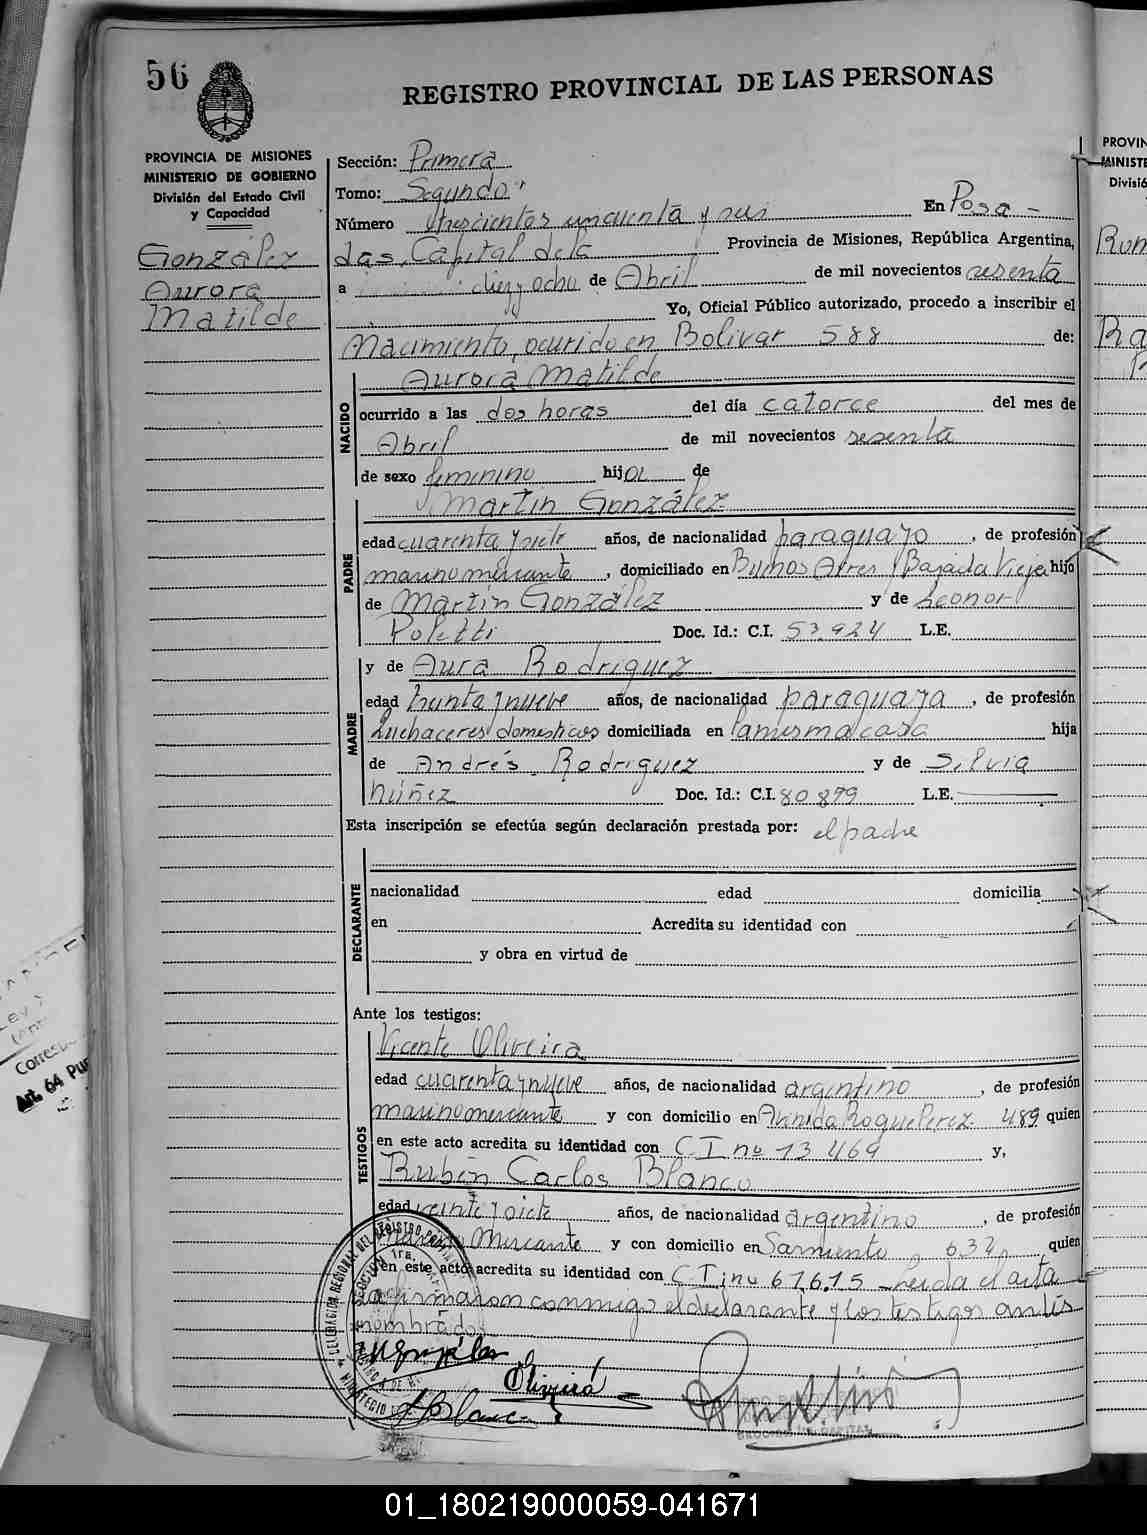 56
REGISTRO PROVINCIAL DE LAS PERSONAS
PROVINCIA DE MISIONES
MINISTERIO DE GOBIERNO
División del Estado Civil
y Capacidad
González
Aurora
Matilde
Sección: Primera
Tomo: Segundo
Número trescientos cincuenta y seis En Posa-
das, Capital de la Provincia de Misiones, República Argentina,
a dieciocho de Abril de mil novecientos sesenta
Yo, Oficial Público autorizado, procedo a inscribir el
Nacimiento, ocurrido en Bolivar 588 de:
NACIDO
Aurora Matilde
ocurrido a las dos horas del día catorce del mes de
Abril de mil novecientos sesenta
de sexo femenino hija de
PADRE
Martín González
edad cuarenta y siete años, de nacionalidad paraguayo, de profesión
marino mercante, domiciliado en Buenos Aires y Bajada Vieja hijo
de Martín González y de Leonor
Poletti Doc. Id.: C.I. 53.924 L.E.
MADRE
y de Aura Rodríguez
edad treinta y nueve años, de nacionalidad paraguaya, de profesión
Quehaceres domésticos domiciliada en la misma casa hija
de Andrés Rodríguez y de Silvia
Núñez Doc. Id.: C.I. 80899 L.E.
Esta inscripción se efectúa según declaración prestada por: el padre
DECLARANTE
nacionalidad edad domicilia
en Acredita su identidad con
y obra en virtud de
Ante los testigos:
TESTIGOS
Vicente Oliveira
edad cuarenta y nueve años, de nacionalidad argentino, de profesión
marino mercante y con domicilio en Avenida Roque Perez 489 quien
en este acto acredita su identidad con C I no 13469 y,
Rubén Carlos Blanco
edad veinte y siete años, de nacionalidad argentino, de profesión
Marino Mercante y con domicilio en Sarmiento 632 quien
en este acto acredita su identidad con C I no 61.615 - Leída el acta
la firmaron conmigo el declarante y los testigos antes
nombrados
Oliveira
Blanco
PROVIN
MINISTE
Divisió
Rom
Ra
Ley
Corresp
Art. 64 Pu
01_180219000059-041671